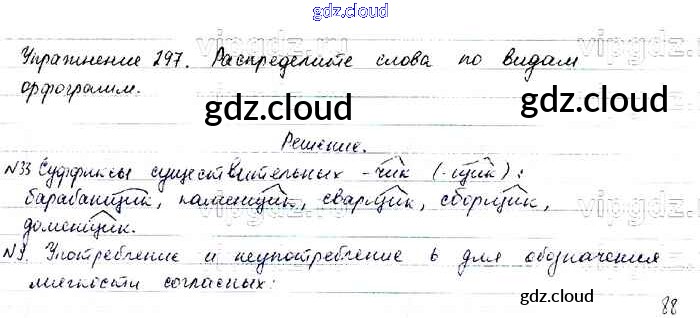 gdz.cloud
Упражнение 297. Распределите слова по видам
орфограмм.
gdz.cloud
gdz.cloud
Решение.
N33 Суффиксы существительных -чик (-щик):
барабанщик, каменщик, сварщик, сборщик,
доменщик.
gdz.cloud
N9. Употребление и неупотребление ь для обозначения
мягкости согласных:
gdz.cloud
88